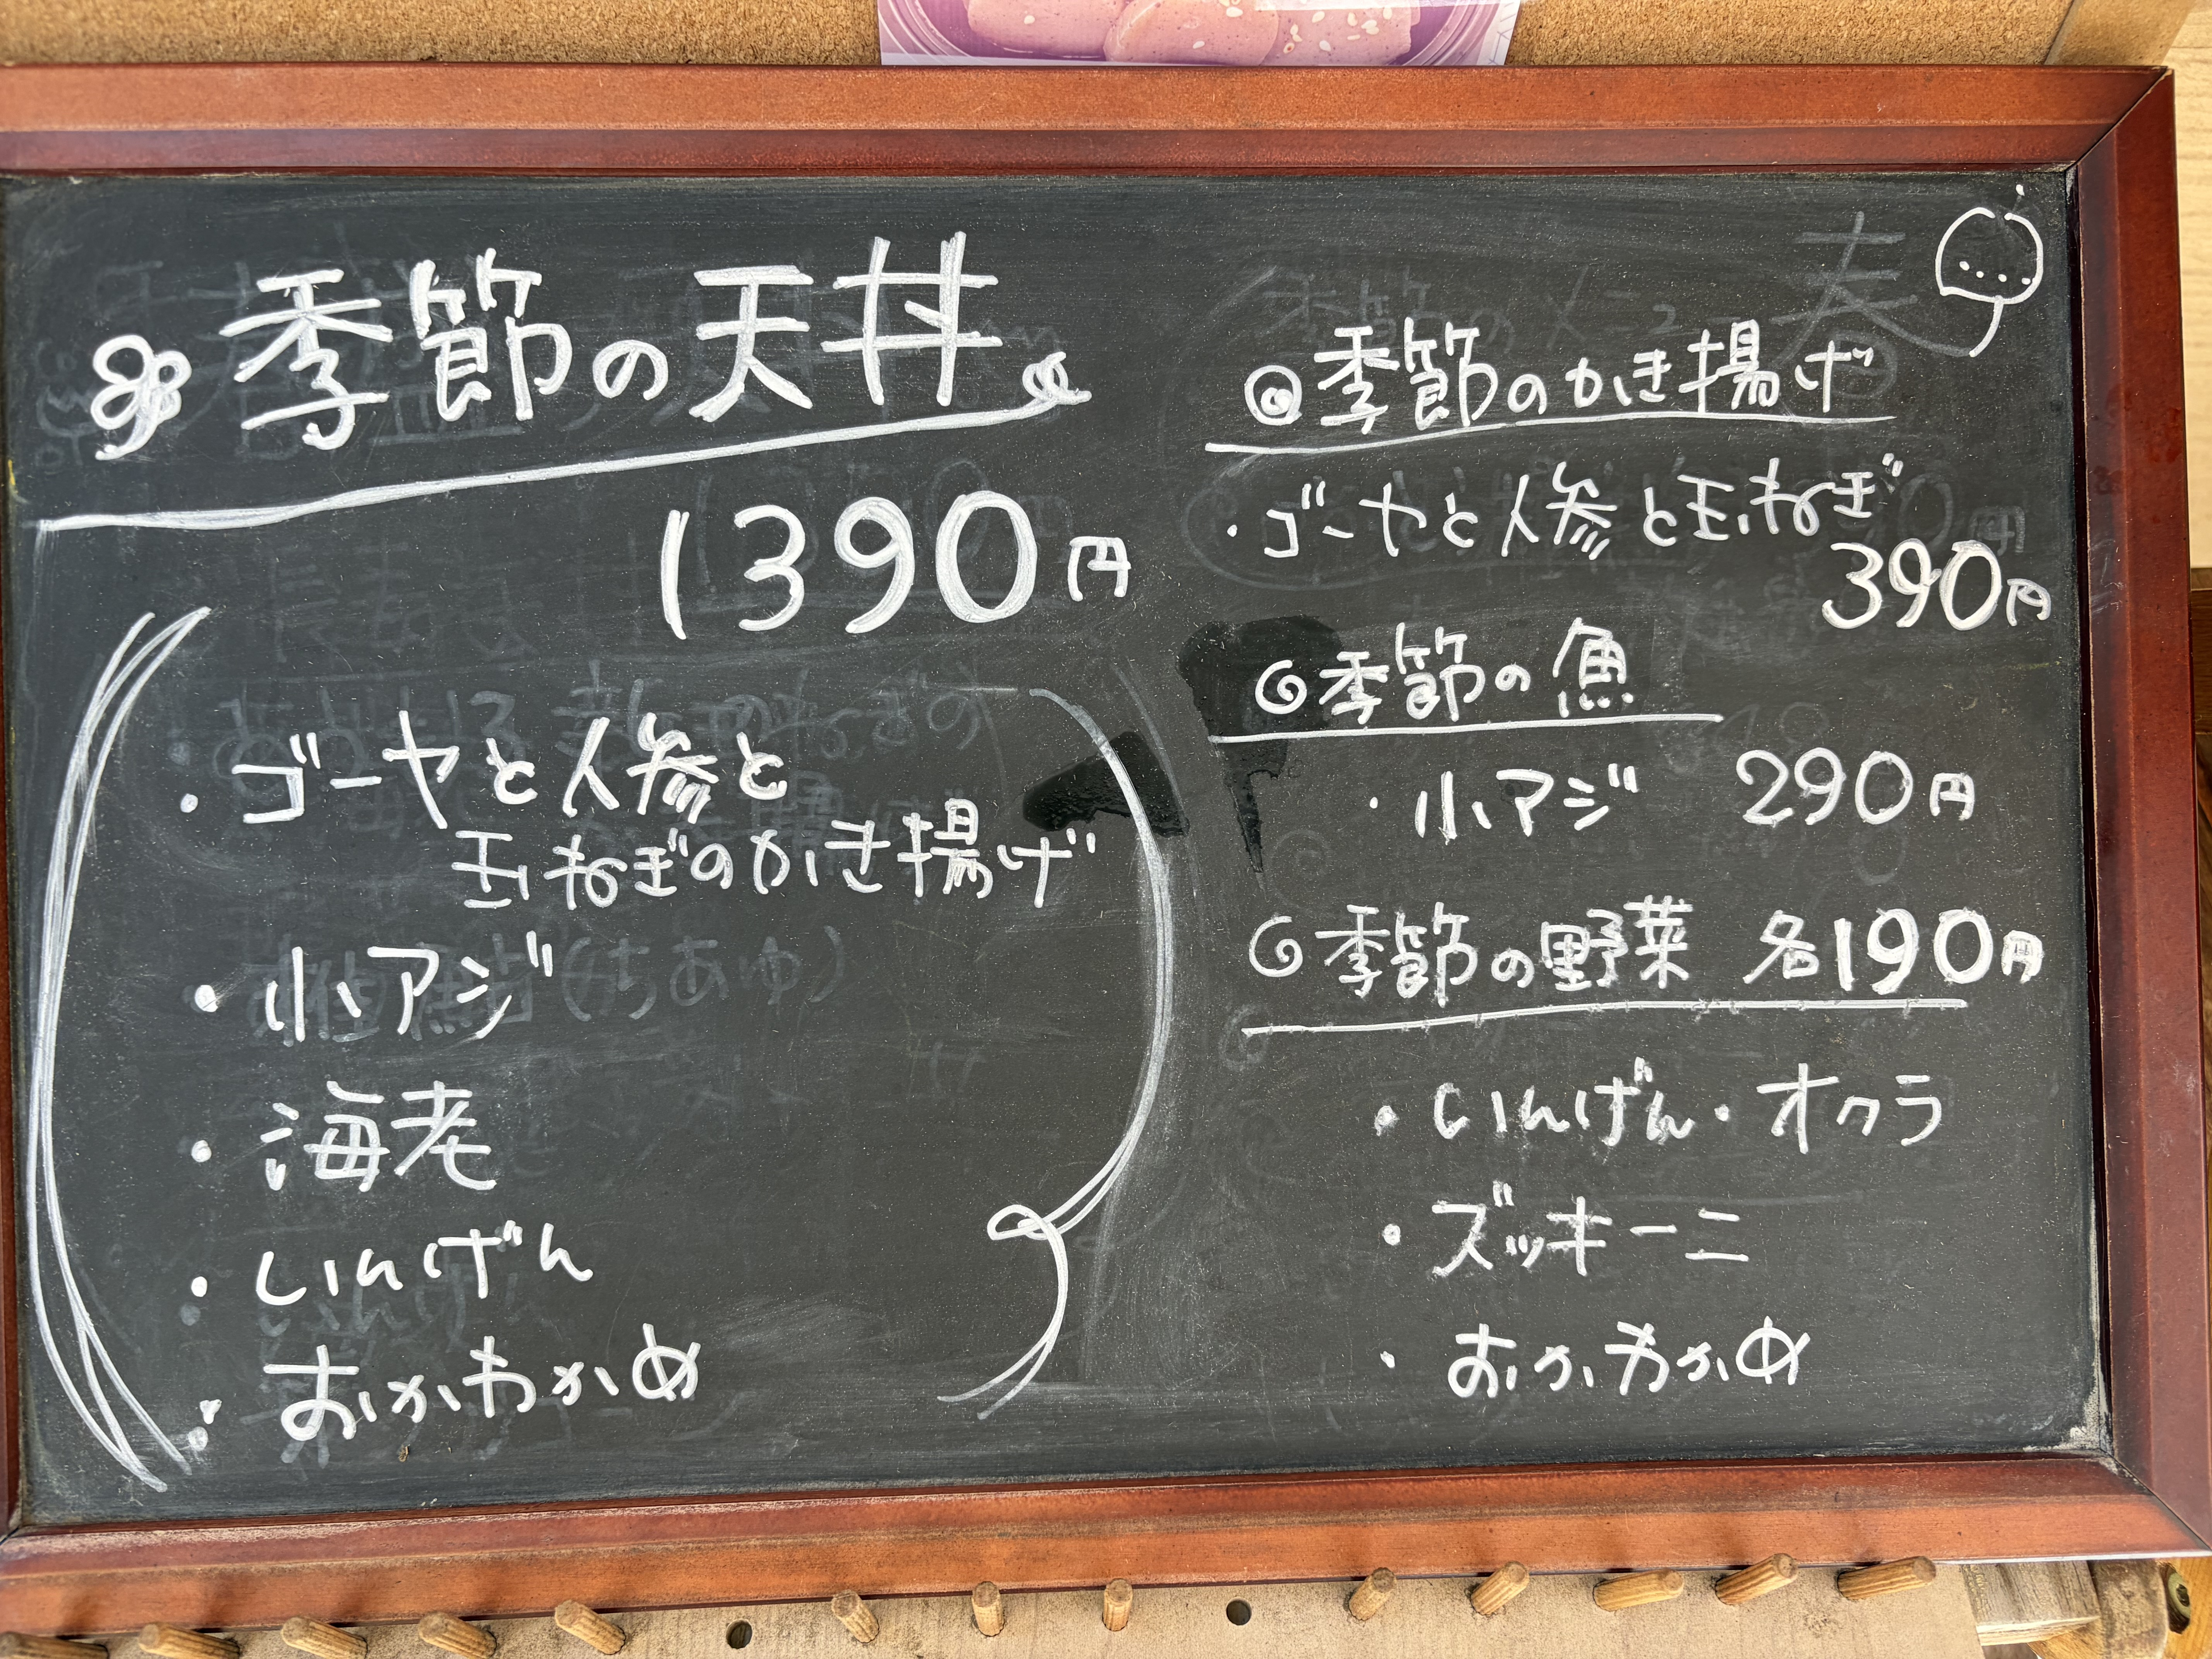 季節の天丼
1390円
・ゴーヤと人参と
玉ねぎのかき揚げ
・小アジ
・海老
・いんげん
・おかわかめ
◎季節のかき揚げ
・ゴーヤと人参と玉ねぎ
390円
季節の魚
・小アジ 290円
季節の野菜 各190円
・いんげん・オクラ
・ズッキーニ
・おかわかめ
春